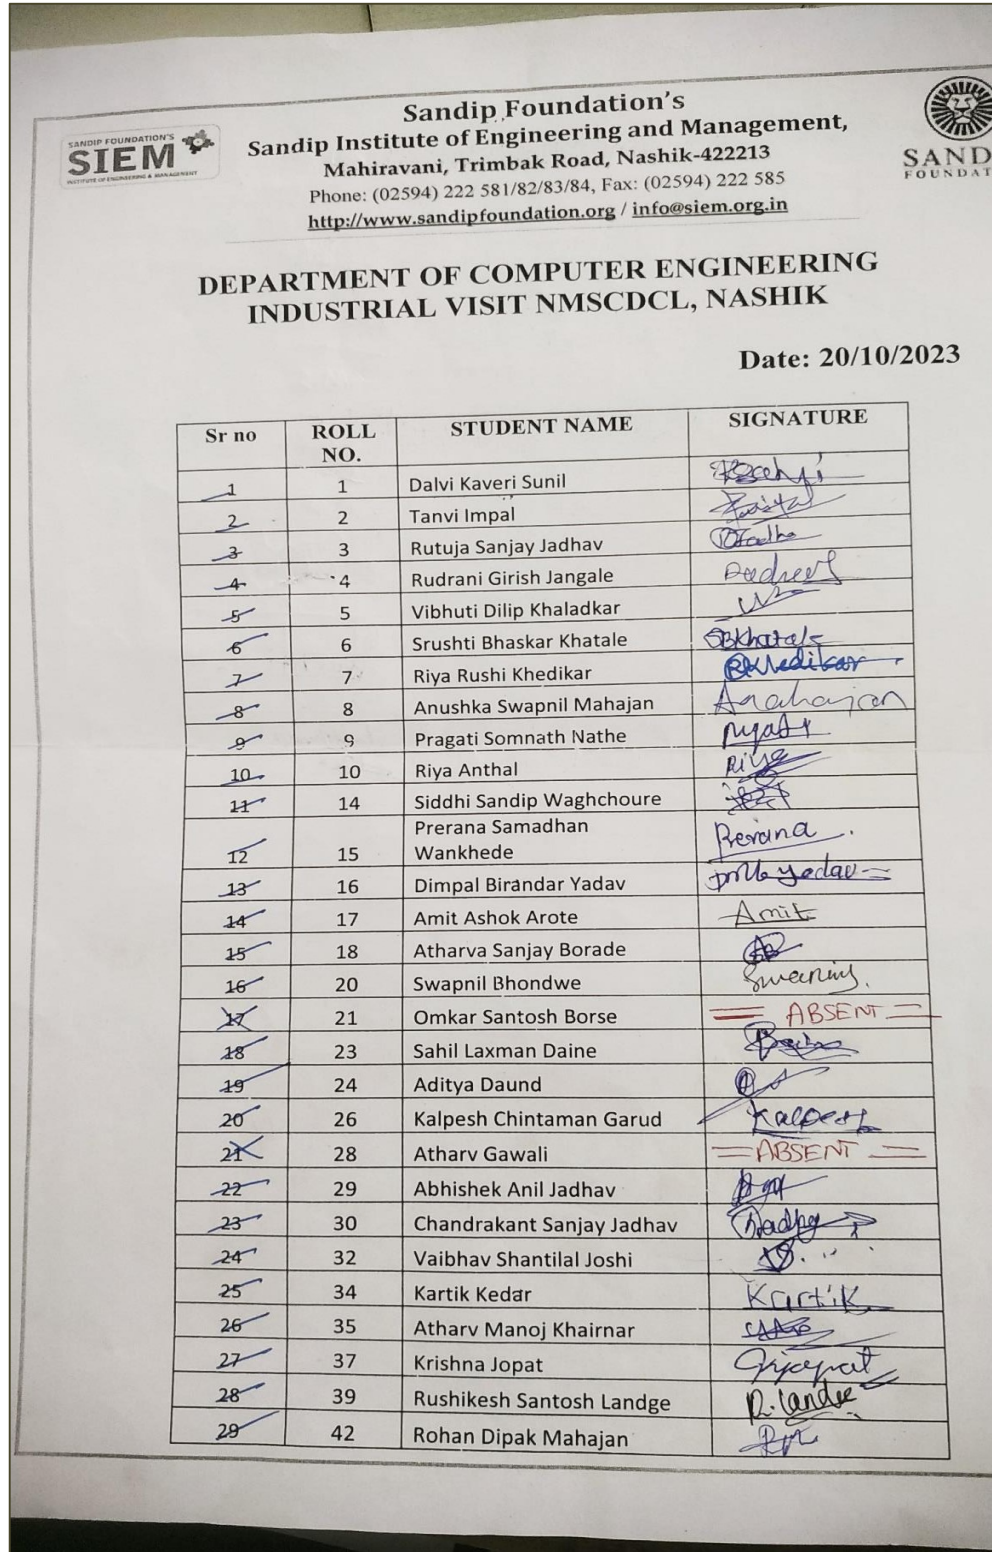 SANDIP FOUNDATION'S
SIEM
INSTITUTE OF ENGINEERING & MANAGEMENT
Sandip Foundation's
Sandip Institute of Engineering and Management,
Mahiravani, Trimbak Road, Nashik-422213
Phone: (02594) 222 581/82/83/84, Fax: (02594) 222 585
http://www.sandipfoundation.org / info@siem.org.in
SAND
FOUNDAT
DEPARTMENT OF COMPUTER ENGINEERING
INDUSTRIAL VISIT NMSCDCL, NASHIK
Date: 20/10/2023
Sr no ROLL NO. STUDENT NAME SIGNATURE
1 1 Dalvi Kaveri Sunil
2 2 Tanvi Impal
3 3 Rutuja Sanjay Jadhav
4 4 Rudrani Girish Jangale
5 5 Vibhuti Dilip Khaladkar
6 6 Srushti Bhaskar Khatale SBKhatale
7 7 Riya Rushi Khedikar RKhedikar
8 8 Anushka Swapnil Mahajan Amahajan
9 9 Pragati Somnath Nathe
10 10 Riya Anthal Riya
11 14 Siddhi Sandip Waghchoure
12 15 Prerana Samadhan Wankhede Prerana
13 16 Dimpal Birandar Yadav Yadav
14 17 Amit Ashok Arote Amit
15 18 Atharva Sanjay Borade
16 20 Swapnil Bhondwe
17 21 Omkar Santosh Borse ABSENT
18 23 Sahil Laxman Daine
19 24 Aditya Daund
20 26 Kalpesh Chintaman Garud Kalpesh
21 28 Atharv Gawali ABSENT
22 29 Abhishek Anil Jadhav
23 30 Chandrakant Sanjay Jadhav
24 32 Vaibhav Shantilal Joshi
25 34 Kartik Kedar Kartik
26 35 Atharv Manoj Khairnar
27 37 Krishna Jopat
28 39 Rushikesh Santosh Landge R. Landge
29 42 Rohan Dipak Mahajan